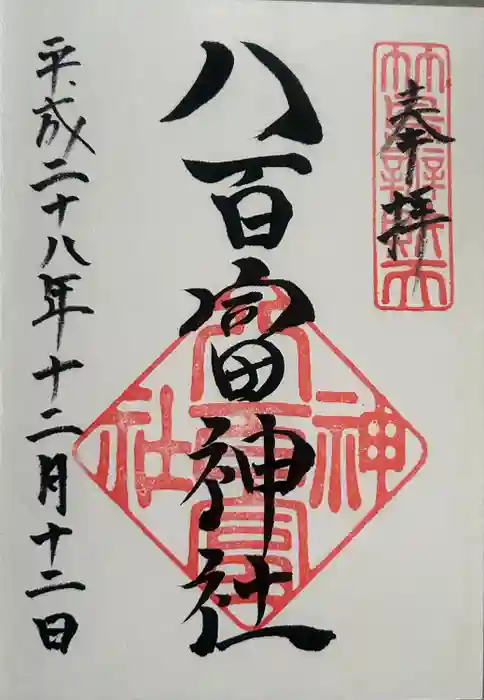 奉拝
八百富神社
平成二十八年十二月十二日
八百富
神社